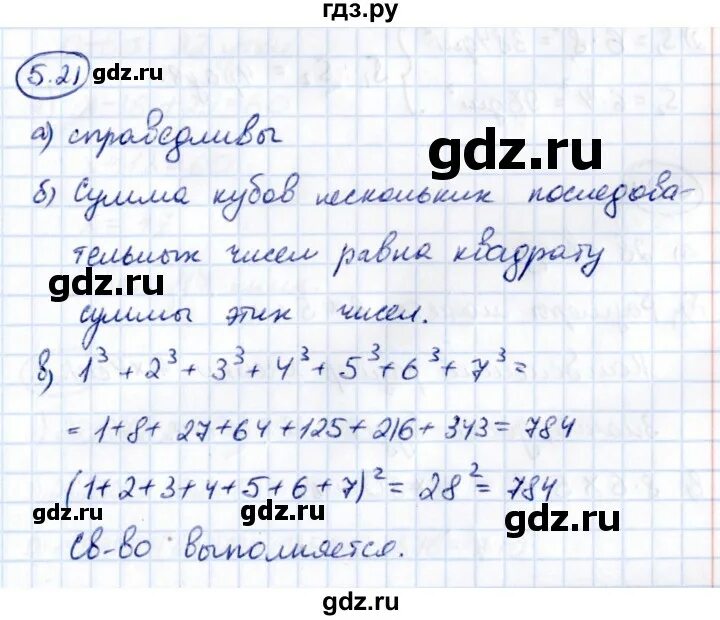 гдз.ру
5.21
gdz.ru
а) справедливы
gdz.ru
б) Сумма кубов нескольких последова-
тельных чисел равна квадрату
gdz.ru
суммы этих чисел.
в) 1³ + 2³ + 3³ + 4³ + 5³ + 6³ + 7³ =
= 1+8+ 27+64+125+216+343 = 784
(1+2+3+4+5+6+7)² = 28² = 784
gdz.ru
gdz.ru
Св-во выполняется.
gdz.ru
gdz.ru